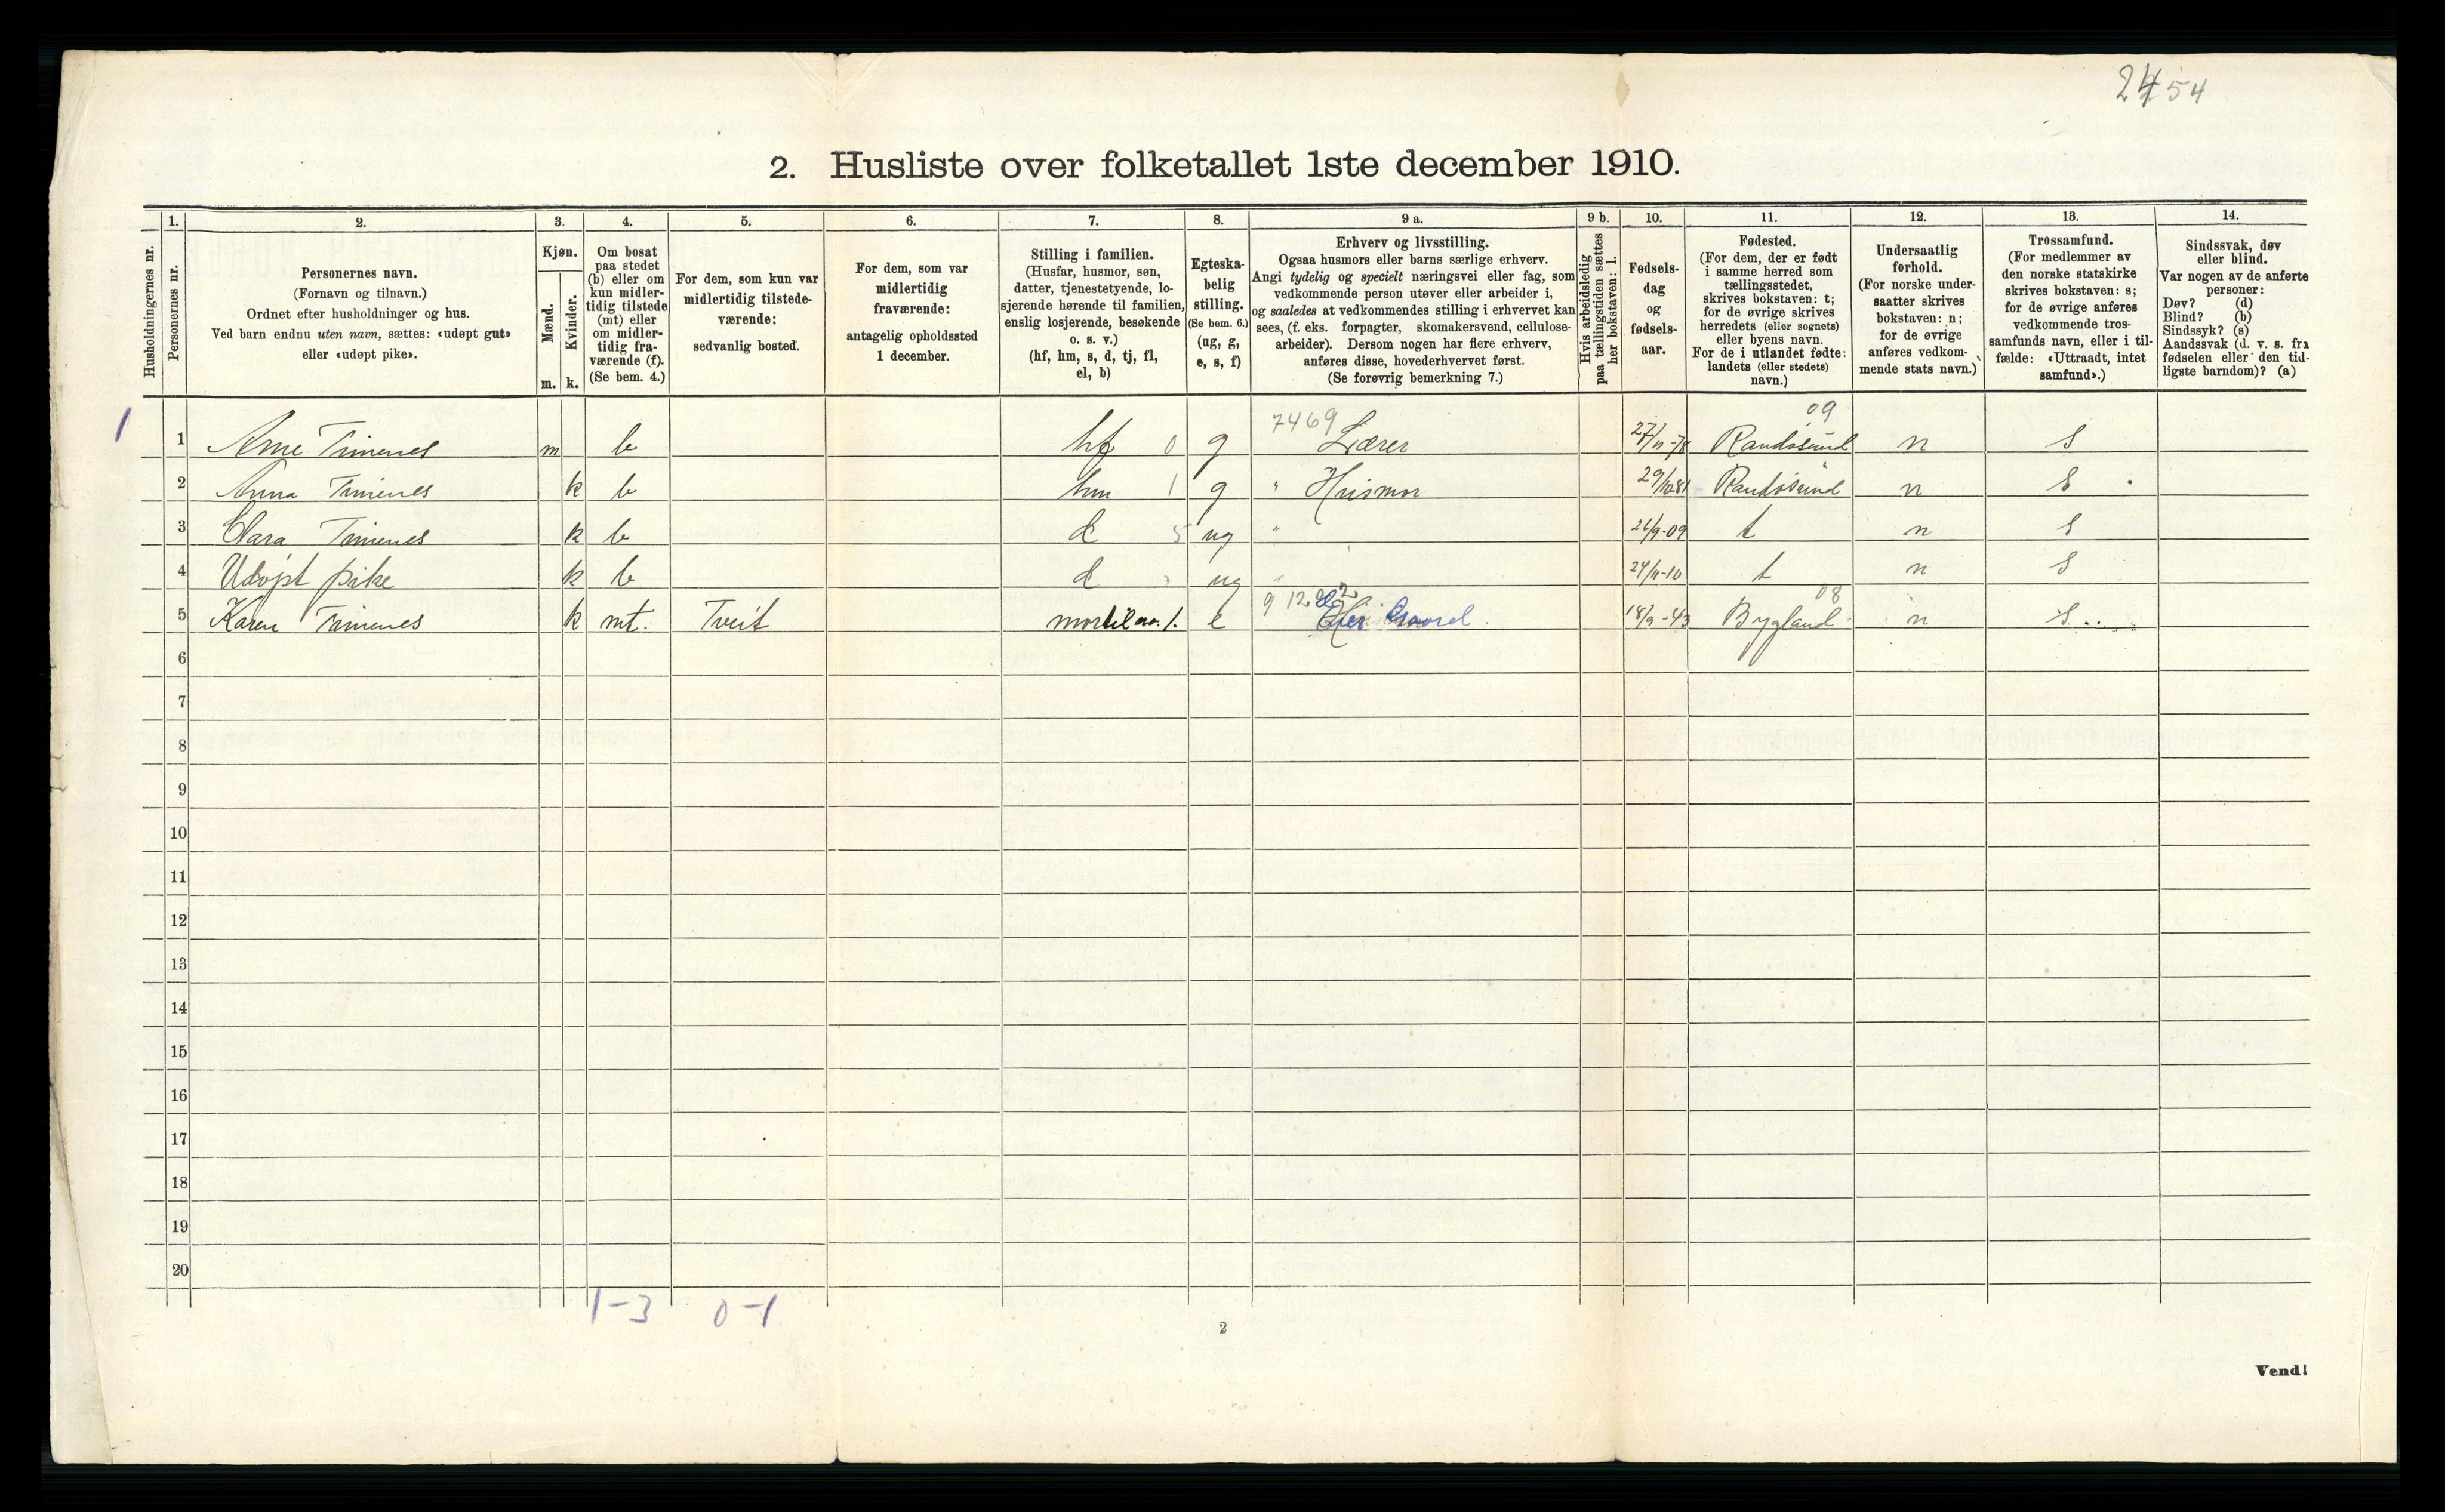 2454
2. Husliste over folketallet 1ste december 1910.
Husholdningernes nr.
1.
Personernes nr.
2.
Personernes navn.
(Fornavn og tilnavn.)
Ordnet efter husholdninger og hus.
Ved barn endnu uten navn, sættes: «udøpt gut»
eller «udøpt pike».
3.
Kjøn.
Mænd.
m.
Kvinder.
k.
4.
Om bosat
paa stedet
(b) eller om
kun midler-
tidig tilstede
(mt) eller
om midler-
tidig fra-
værende (f).
(Se bem. 4.)
5.
For dem, som kun var
midlertidig tilstede-
værende:
sedvanlig bosted.
6.
For dem, som var
midlertidig
fraværende:
antagelig opholdssted
1 december.
7.
Stilling i familien.
(Husfar, husmor, søn,
datter, tjenestetyende, lo-
sjerende hørende til familien,
enslig losjerende, besøkende
o. s. v.)
(hf, hm, s, d, tj, fl,
el, b)
8.
Egteska-
belig
stilling.
(Se bem. 6.)
(ug, g,
e, s, f)
9 a.
Erhverv og livsstilling.
Ogsaa husmors eller barns særlige erhverv.
Angi tydelig og specielt næringsvei eller fag, som
vedkommende person utøver eller arbeider i,
og saaledes at vedkommendes stilling i erhvervet kan
sees, (f. eks. forpagter, skomakersvend, cellulose-
arbeider). Dersom nogen har flere erhverv,
anføres disse, hovederhvervet først.
(Se forøvrig bemerkning 7.)
9 b.
Hvis arbeidsledig
paa tællingstiden sættes
her bokstaven: l.
10.
Fødsels-
dag
og
fødsels-
aar.
11.
Fødested.
(For dem, der er født
i samme herred som
tællingsstedet,
skrives bokstaven: t;
for de øvrige skrives
herredets (eller sognets)
eller byens navn.
For de i utlandet fødte:
landets (eller stedets)
navn.)
12.
Undersaatlig
forhold.
(For norske under-
saatter skrives
bokstaven: n;
for de øvrige
anføres vedkom-
mende stats navn.)
13.
Trossamfund.
(For medlemmer av
den norske statskirke
skrives bokstaven: s;
for de øvrige anføres
vedkommende tros-
samfunds navn, eller i til-
fælde: «Uttraadt, intet
samfund».)
14.
Sindssvak, døv
eller blind.
Var nogen av de anførte
personer:
Døv? (d)
Blind? (b)
Sindssyk? (s)
Aandssvak (d. v. s. fra
fødselen eller den tid-
ligste barndom)? (a)
7469 09
1 1 Arne Timenes m b hf 0 g Lærer 27/11-78 Randøsund n s
2 Anna Timenes k b hm 1 g " Husmor 29/10-81 Randøsund n s
3 Clara Timenes k b d 5 ug " 26/9-09 t n s
4 Udøpt pike k b d ug 24/11-10 t n s
08
5 Karen Timenes k mt. Tveit mor til no. 1. e Eier Gaard 18/9-43 Bygland n s
6
7
8
9
10
11
12
13
14
15
16
17
18
19
20
1-3 0-1
2
Vend!